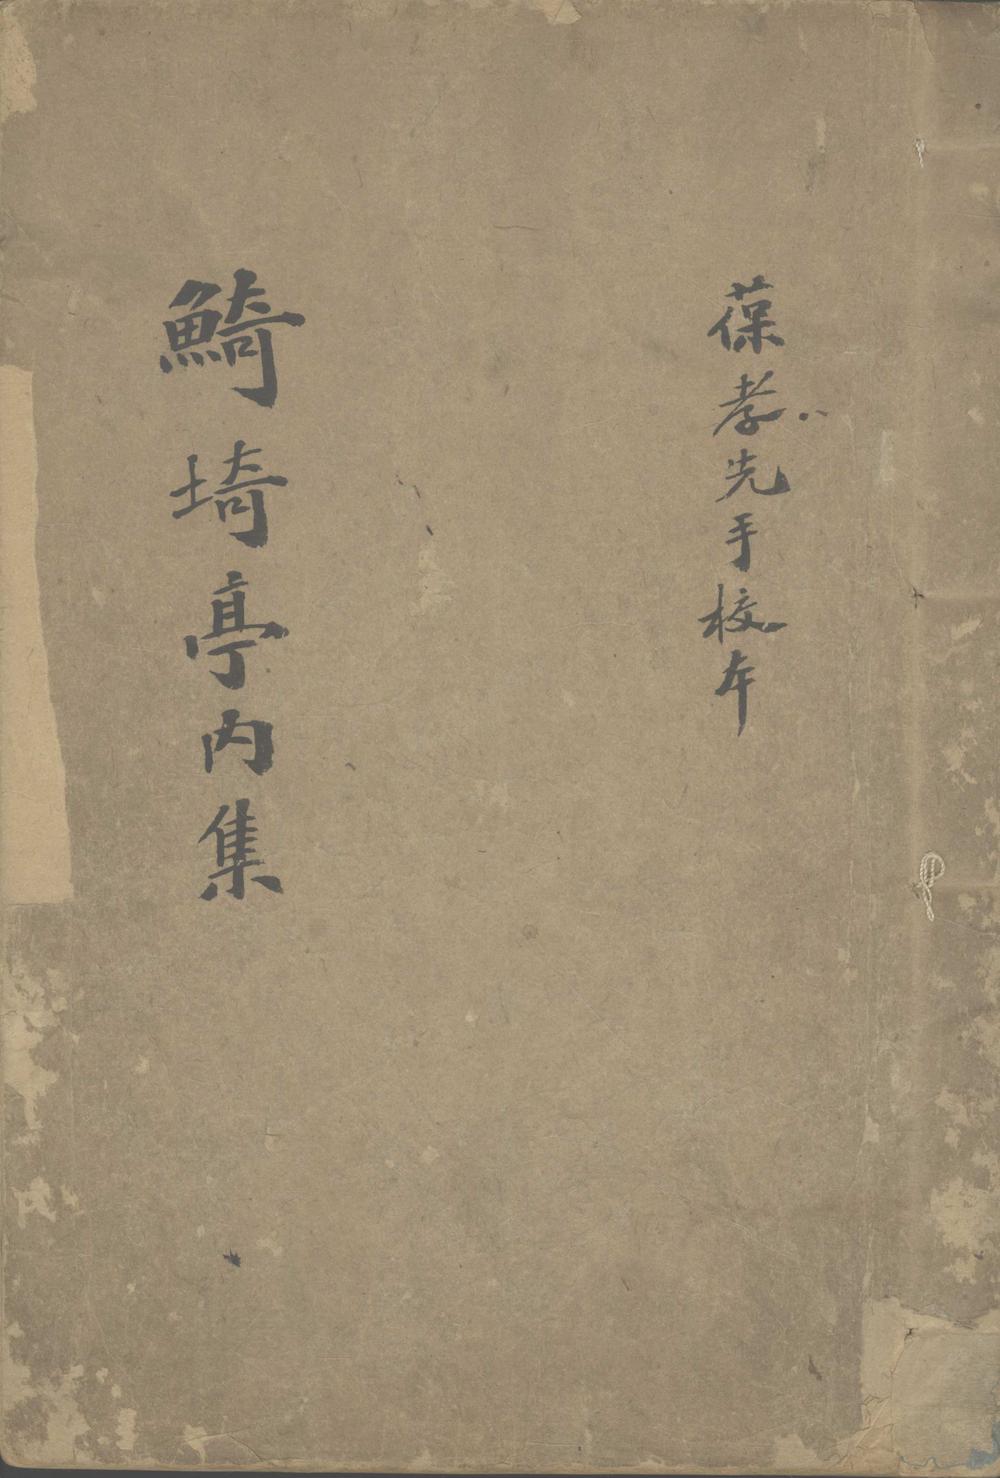 葆孝先手校本
𩸞埼亭内集